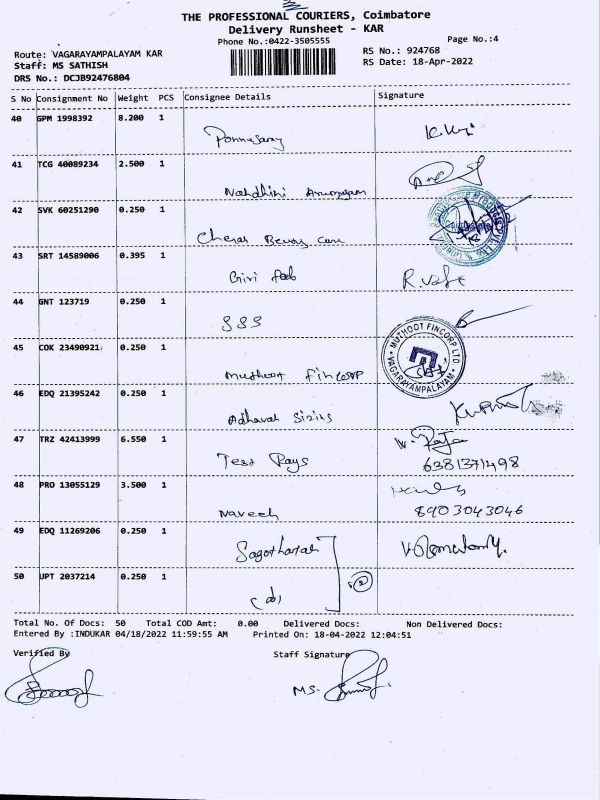 THE PROFESSIONAL COURIERS, Coimbatore
Delivery Runsheet - KAR
Phone No.:0422-3505555
Page No.:4
Route: VAGARAYAMPALAYAM KAR
RS No.: 924768
Staff: MS SATHISH
RS Date: 18-Apr-2022
DRS No.: DCJB92476804
S No Consignment No Weight PCS Consignee Details Signature
40 GPM 1998392 8.200 1
Ponnusamy
41 TCG 40089234 2.500 1
Nandhini
42 SVK 60251290 0.250 1
43 SRT 14589006 0.395 1
Giri
44 GNT 123719 0.250 1
SSS
45 COK 23490921 0.250 1
Muthoot Fincorp
MUTHOOT FINCORP LTD.
VAGARAYAMPALAYAM
46 EDQ 21395242 0.250 1
47 TRZ 42413999 6.550 1
Raja
Test Rays 6381371498
48 PRO 13055129 3.500 1
Naveen 8903043046
49 EDQ 11269206 0.250 1
50 UPT 2037214 0.250 1
Total No. Of Docs: 50 Total COD Amt: 0.00 Delivered Docs: Non Delivered Docs:
Entered By :INDUKAR 04/18/2022 11:59:55 AM Printed On: 18-04-2022 12:04:51
Verified By Staff Signature
MS.